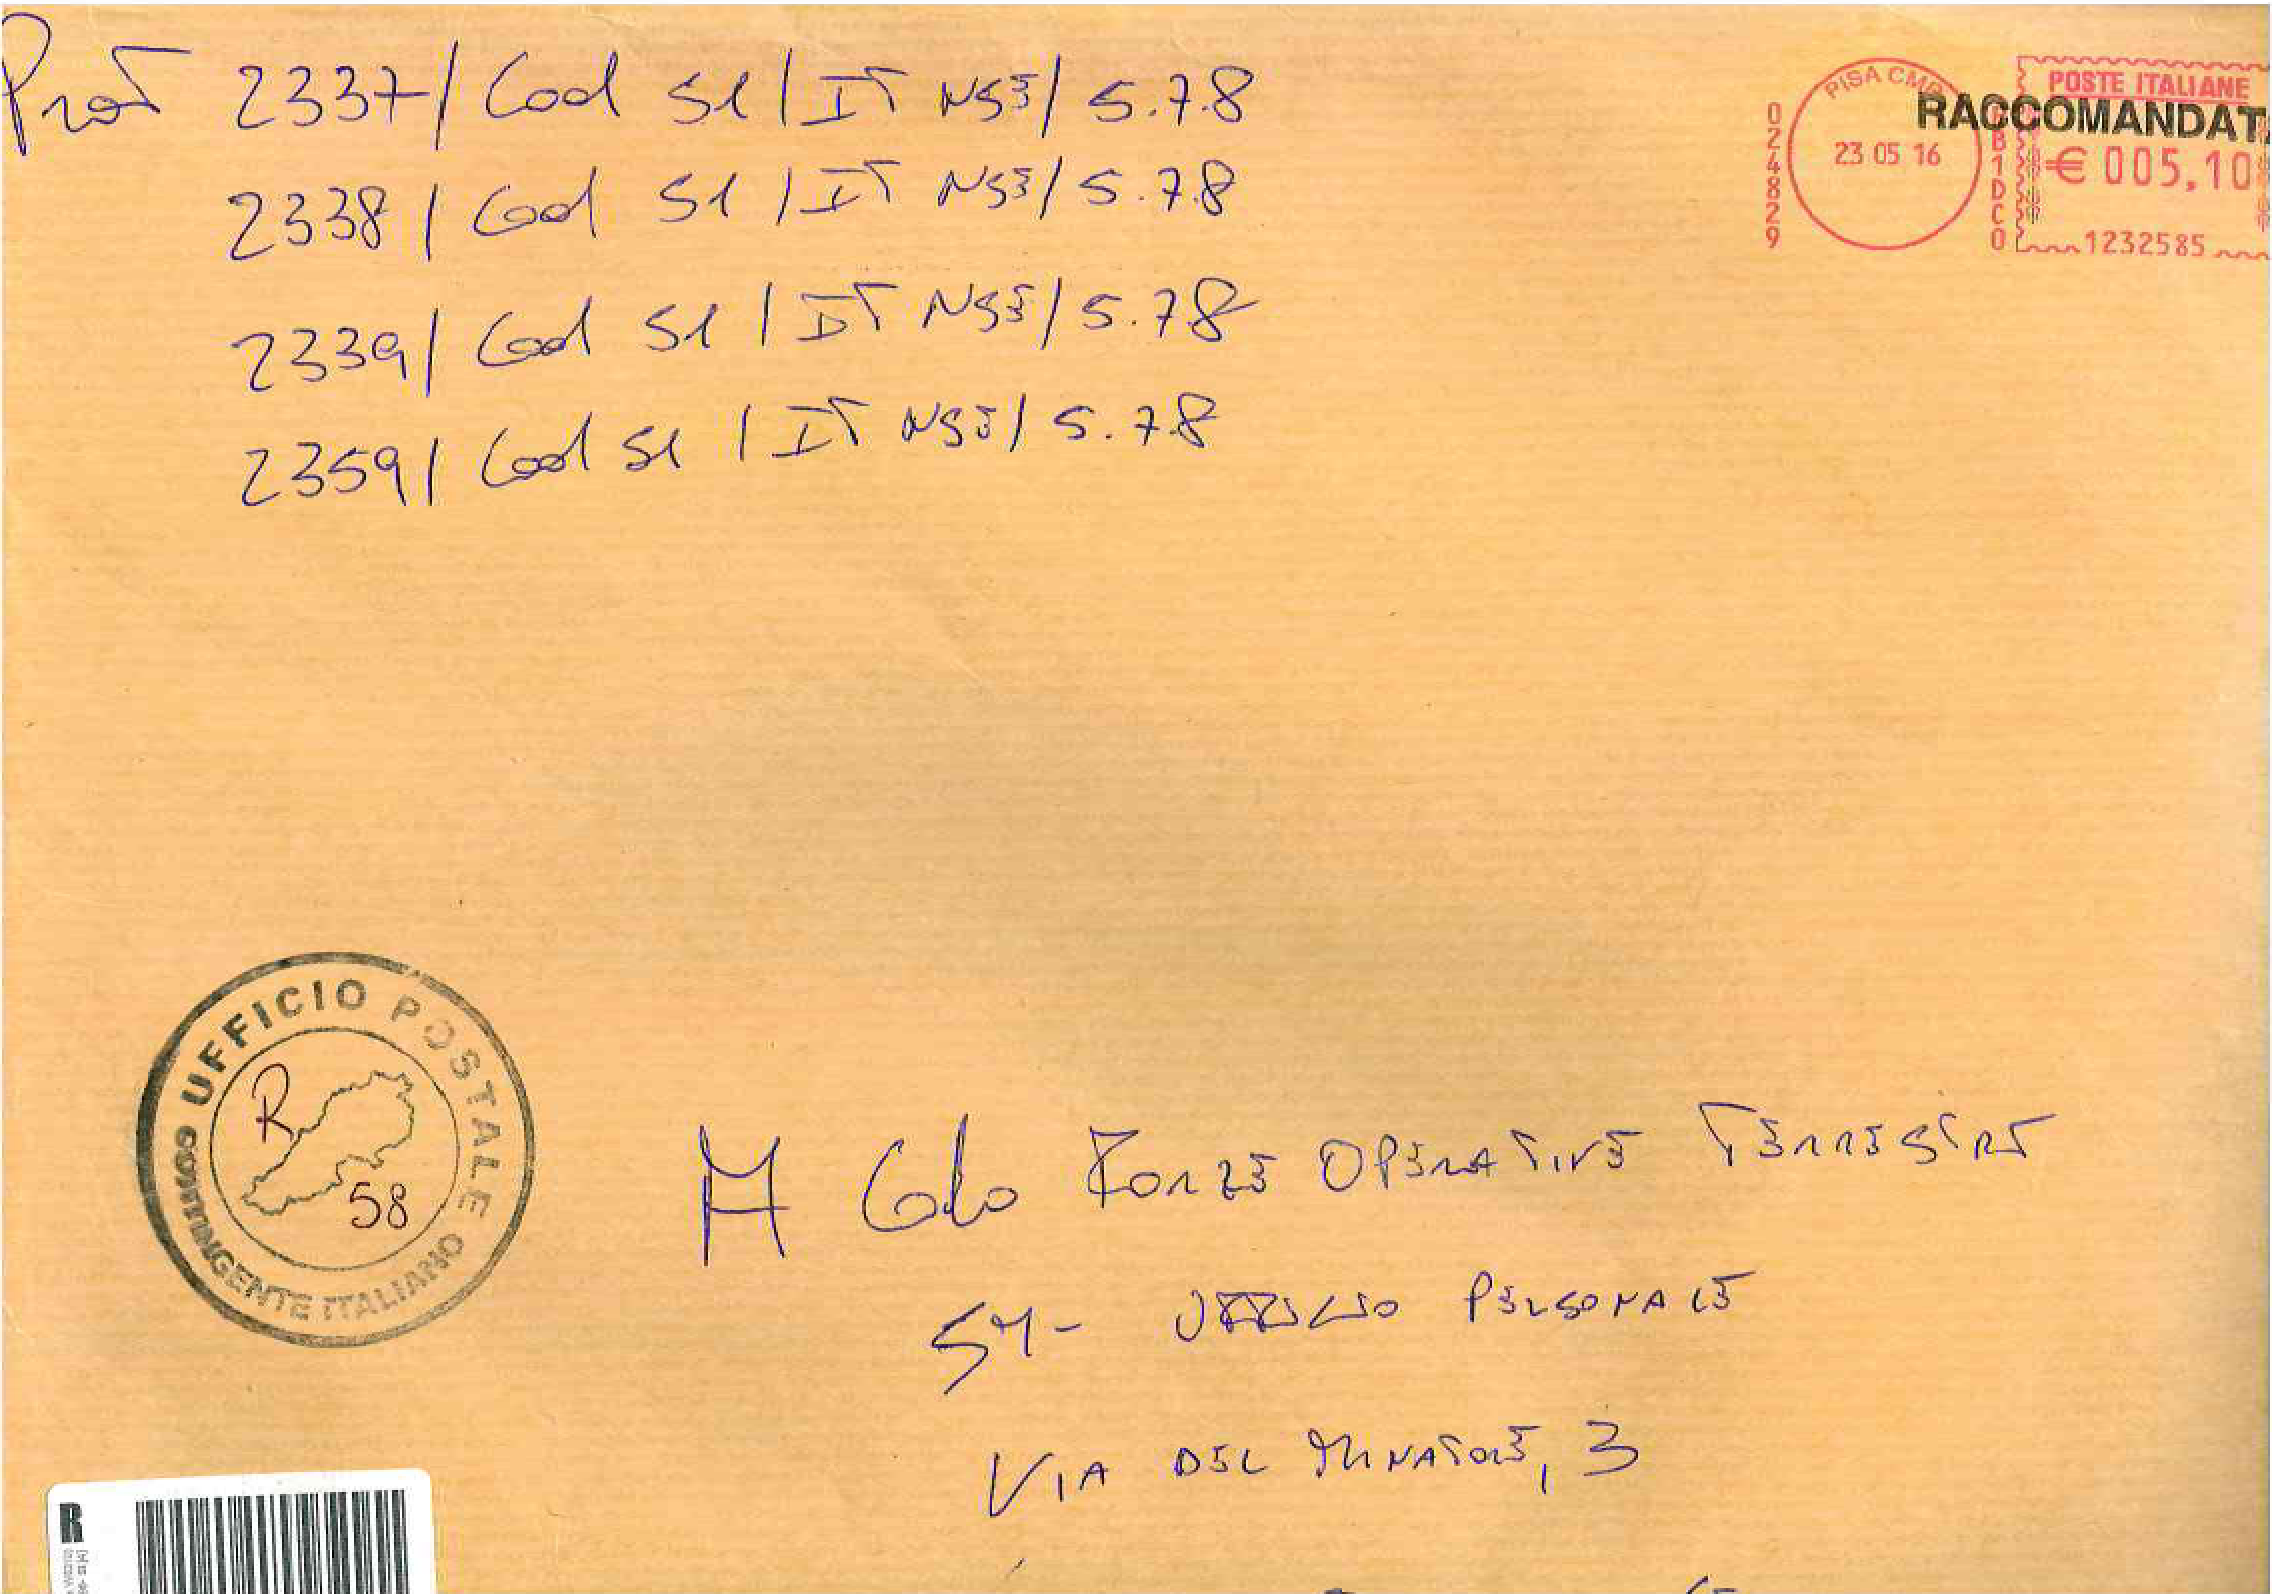 Prot 2337/ Cod S1 / IT NSE/ 5.7.8
2338/ Cod S1 / IT NSE/ 5.7.8
2339/ Cod S1 / IT NSE/ 5.7.8
2359/ Cod S1 / IT NSE/ 5.7.8
024829
PISA CMP
23 05 16
RACCOMANDATA
POSTE ITALIANE
€ 005,10
1232585
UFFICIO POSTALE
CONTINGENTE ITALIANO
R
58
A Cdo FORZE OPERATIVE TERRESTRI
SM - UFFICIO PERSONALE
VIA DEL MINATORE, 3
R